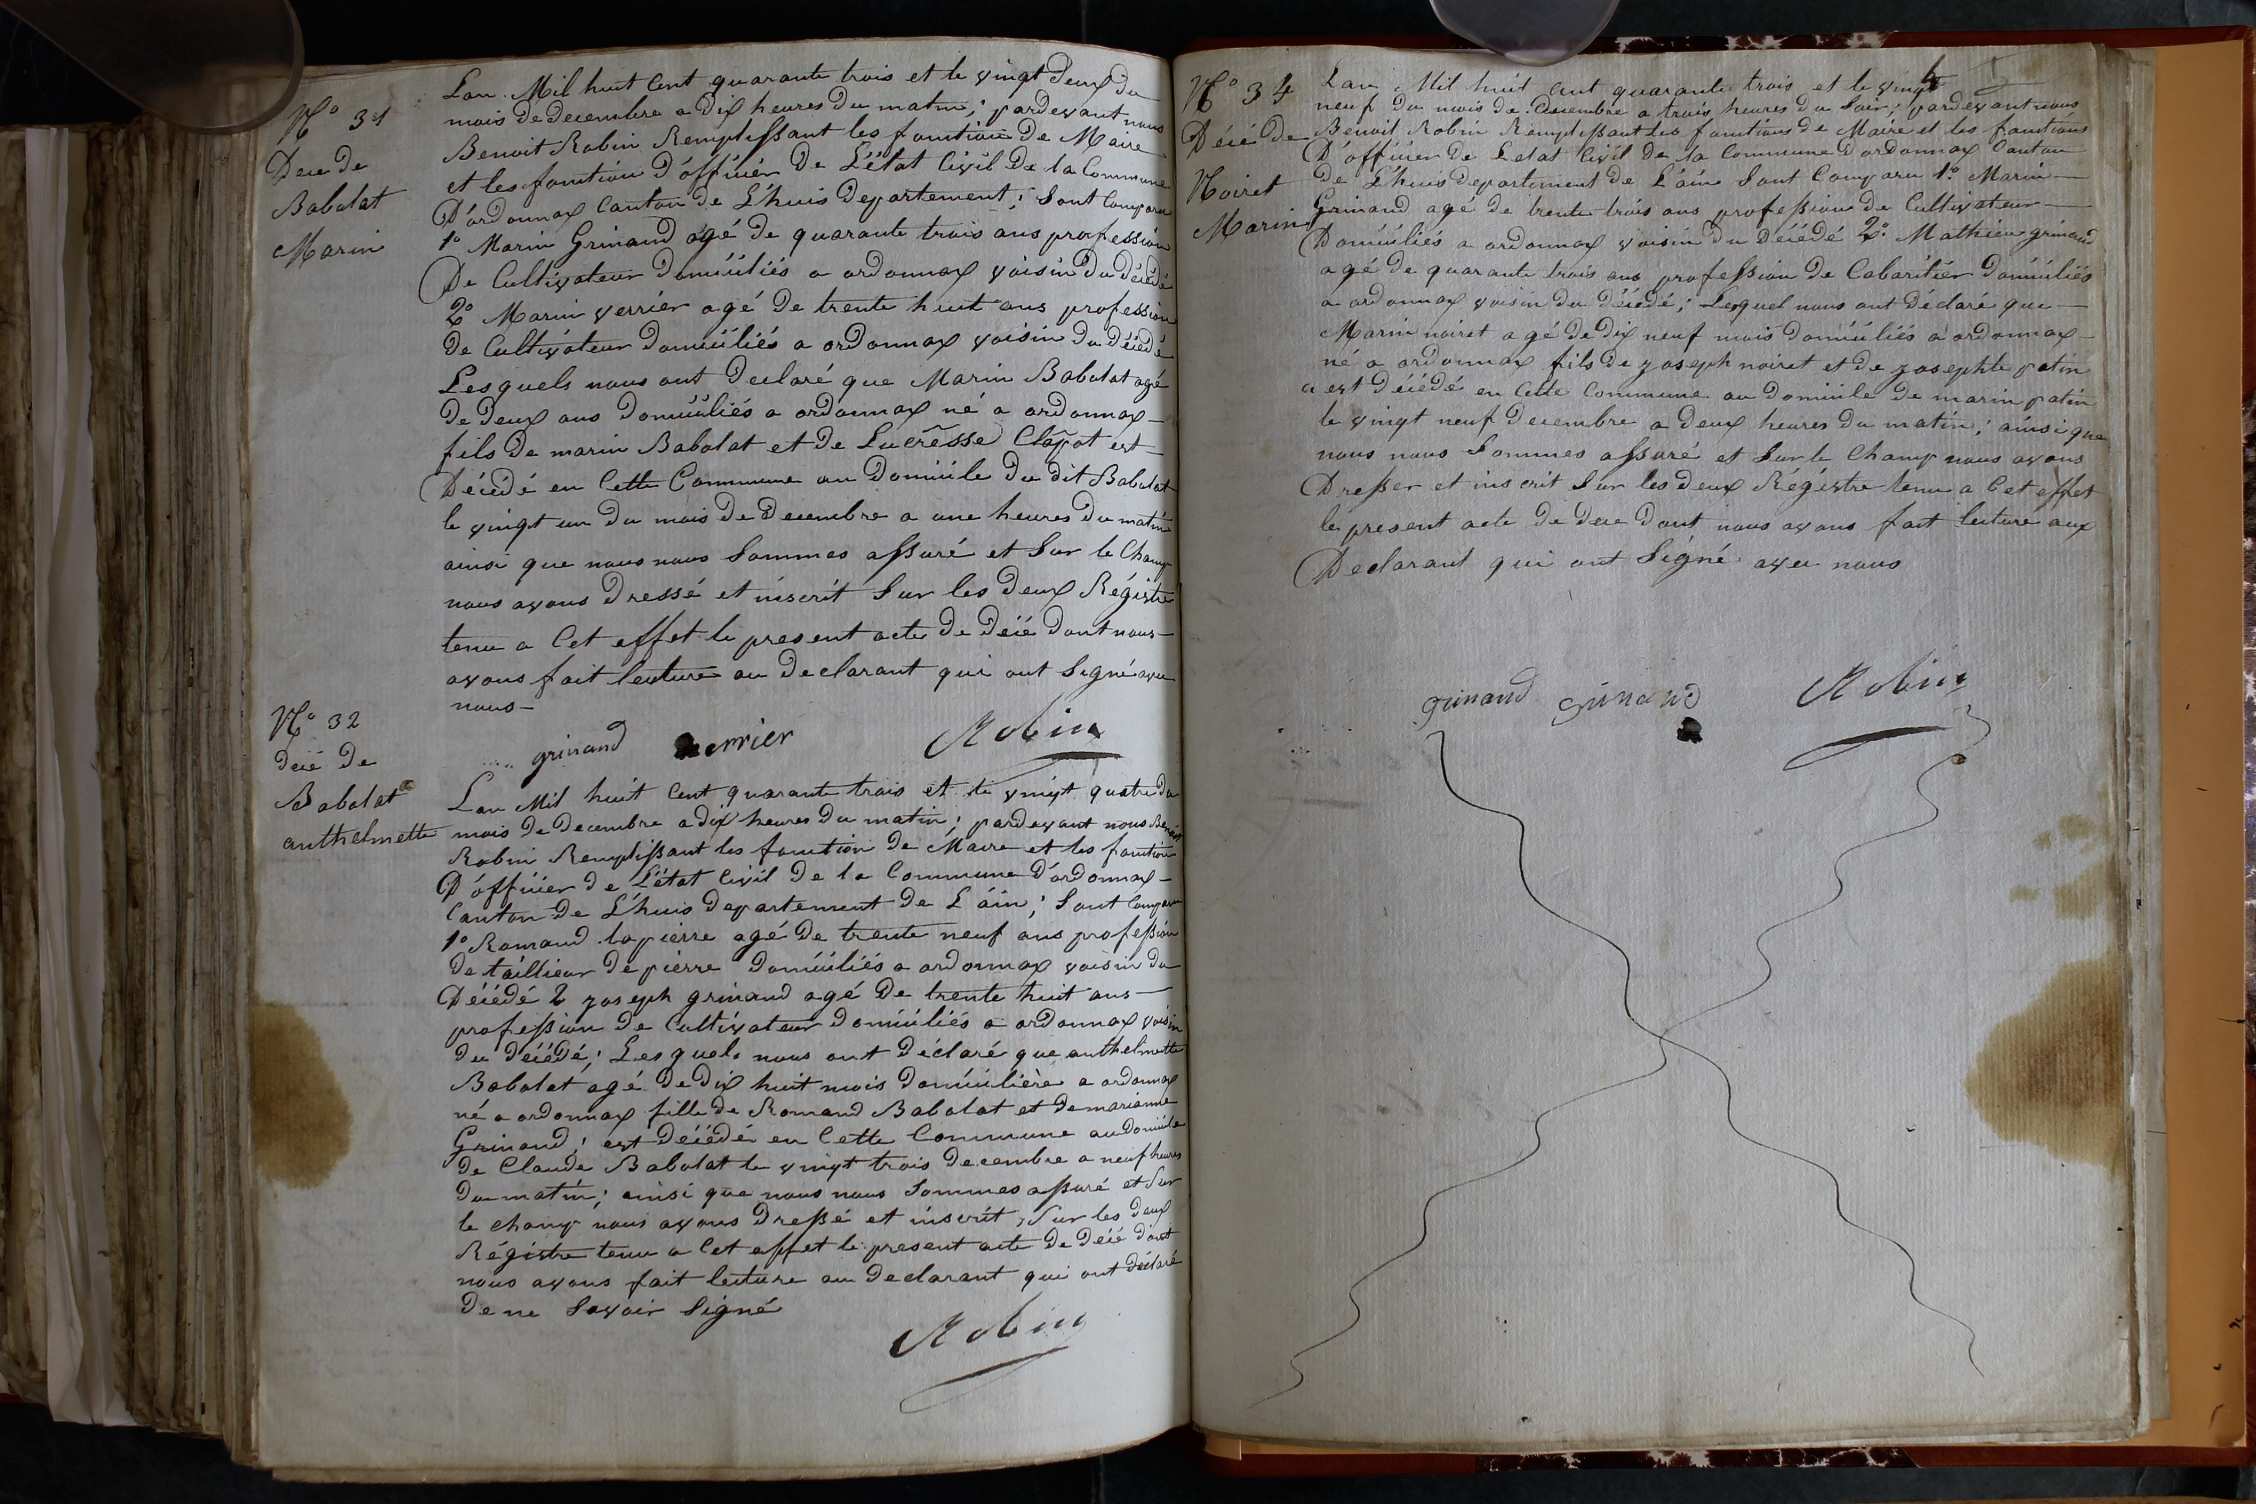 N.o 31
Decé de
Babolat
Marin
Lan Mil huit Cent quarante trois et le vingt Deux du
mois de decembre a Dix heures du matin; pardevant nous
Benoit Robin Remplissant les fonction de Maire
et les fonction D'officier de L'état Civil de la Commune
D'ordonnax Canton de L'huis Departement; Sont Comparu
1.o Marin Grinand agé de quarante trois ans profession
De Cultivateur Domiciliés a ordonnax voisin du décédé
2.o Marin verrier agé de trente huit ans profession
de Cultivateur domiciliés a ordonnax voisin du décédé
Lesquels nous ont Declaré que Marin Babolat agé
de Deux ans Domiciliés a ordonnax né a ordonnax
fils de marin Babolat et de Lucrêsse Clapot est
Décédé en Cette Commune au Domicile du dit Babolat
le vingt un du mois de Decembre a une heures du matin
ainsi que nous nous Sommes assuré et Sur le Champ
nous avons dressé et inscrit Sur les deux Régistre
tenu a Cet effet le present acte de décé Dont nous
avons fait lecture au Declarant qui ont Signé avec
nous
grinand verrier Robin
N.o 32
décé de
Babolat
anthelmette
Lan Mil huit Cent quarante trois et le vingt quatre du
mois de decembre a dix heures du matin; pardevant nous Benoit
Robin Remplissant les fonction de Maire et les fonction
D'officier de L'état Civil de la Commune D'ordonnax
Canton de L'huis Departement de L'ain; Sont Comparu
1.o Romand lapierre agé de trente neuf ans profession
de taillieur de pierre domiciliés a ordonnax voisin du
Décédé 2 joseph grinand agé de trente huit ans
profession de Cultivateur domiciliés a ordonnax voisin
du décédé; Lesquels nous ont déclaré que anthelmette
Babolat agé de dix huit mois domicilière a ordonnax
né a ordonnax fille de Romand Babolat et de marianne
Grinand; est décédé en Cette Commune au Domicile
de Claude Babolat le vingt trois decembre a neuf heures
du matin; ainsi que nous nous Sommes assuré et Sur
le champ nous avons Dressé et inscrit, Sur les deux
Régistre tenu a Cet effet le present acte de décé dont
nous avons fait lecture au declarant qui ont déclaré
de ne Savoir Signé
Robin
N.o 34
Décé de
Noiret
Marin
Lan Mil huit Cent quarante trois et le vingt
neuf du mois de decembre a trois heures du Soir; pardevant nous
Benoit Robin Remplissant les fonctions de Maire et les fonctions
D'officier de Letat Civil de la Commune D'ordonnax Canton
de L'huis departement de L'ain Sont Comparu 1.o Marin
Grinand agé de trente trois ans profession de Cultivateur
Domiciliés a ordonnax voisin du Décédé 2.o Mathieu grinand
agé de quarante trois ans profession de Cabaritier domiciliés
a ordonnax voisin du décédé; Lesquel nous ont déclaré que
Marin noiret agé de Dix neuf mois domiciliés a ordonnax
né a ordonnax fils de joseph noiret et de josephte patin
a est décédé en Cette Commune au domicile de marin patin
le vingt neuf decembre a deux heures du matin; ainsi que
nous nous Sommes assuré et Sur le Champ nous avons
Dresser et inscrit Sur les deux Régistre tenu a Cet effet
le present acte de dece Dont nous avons fait lecture aux
Declarant qui ont Signé avec nous
grinand Grinand Robin